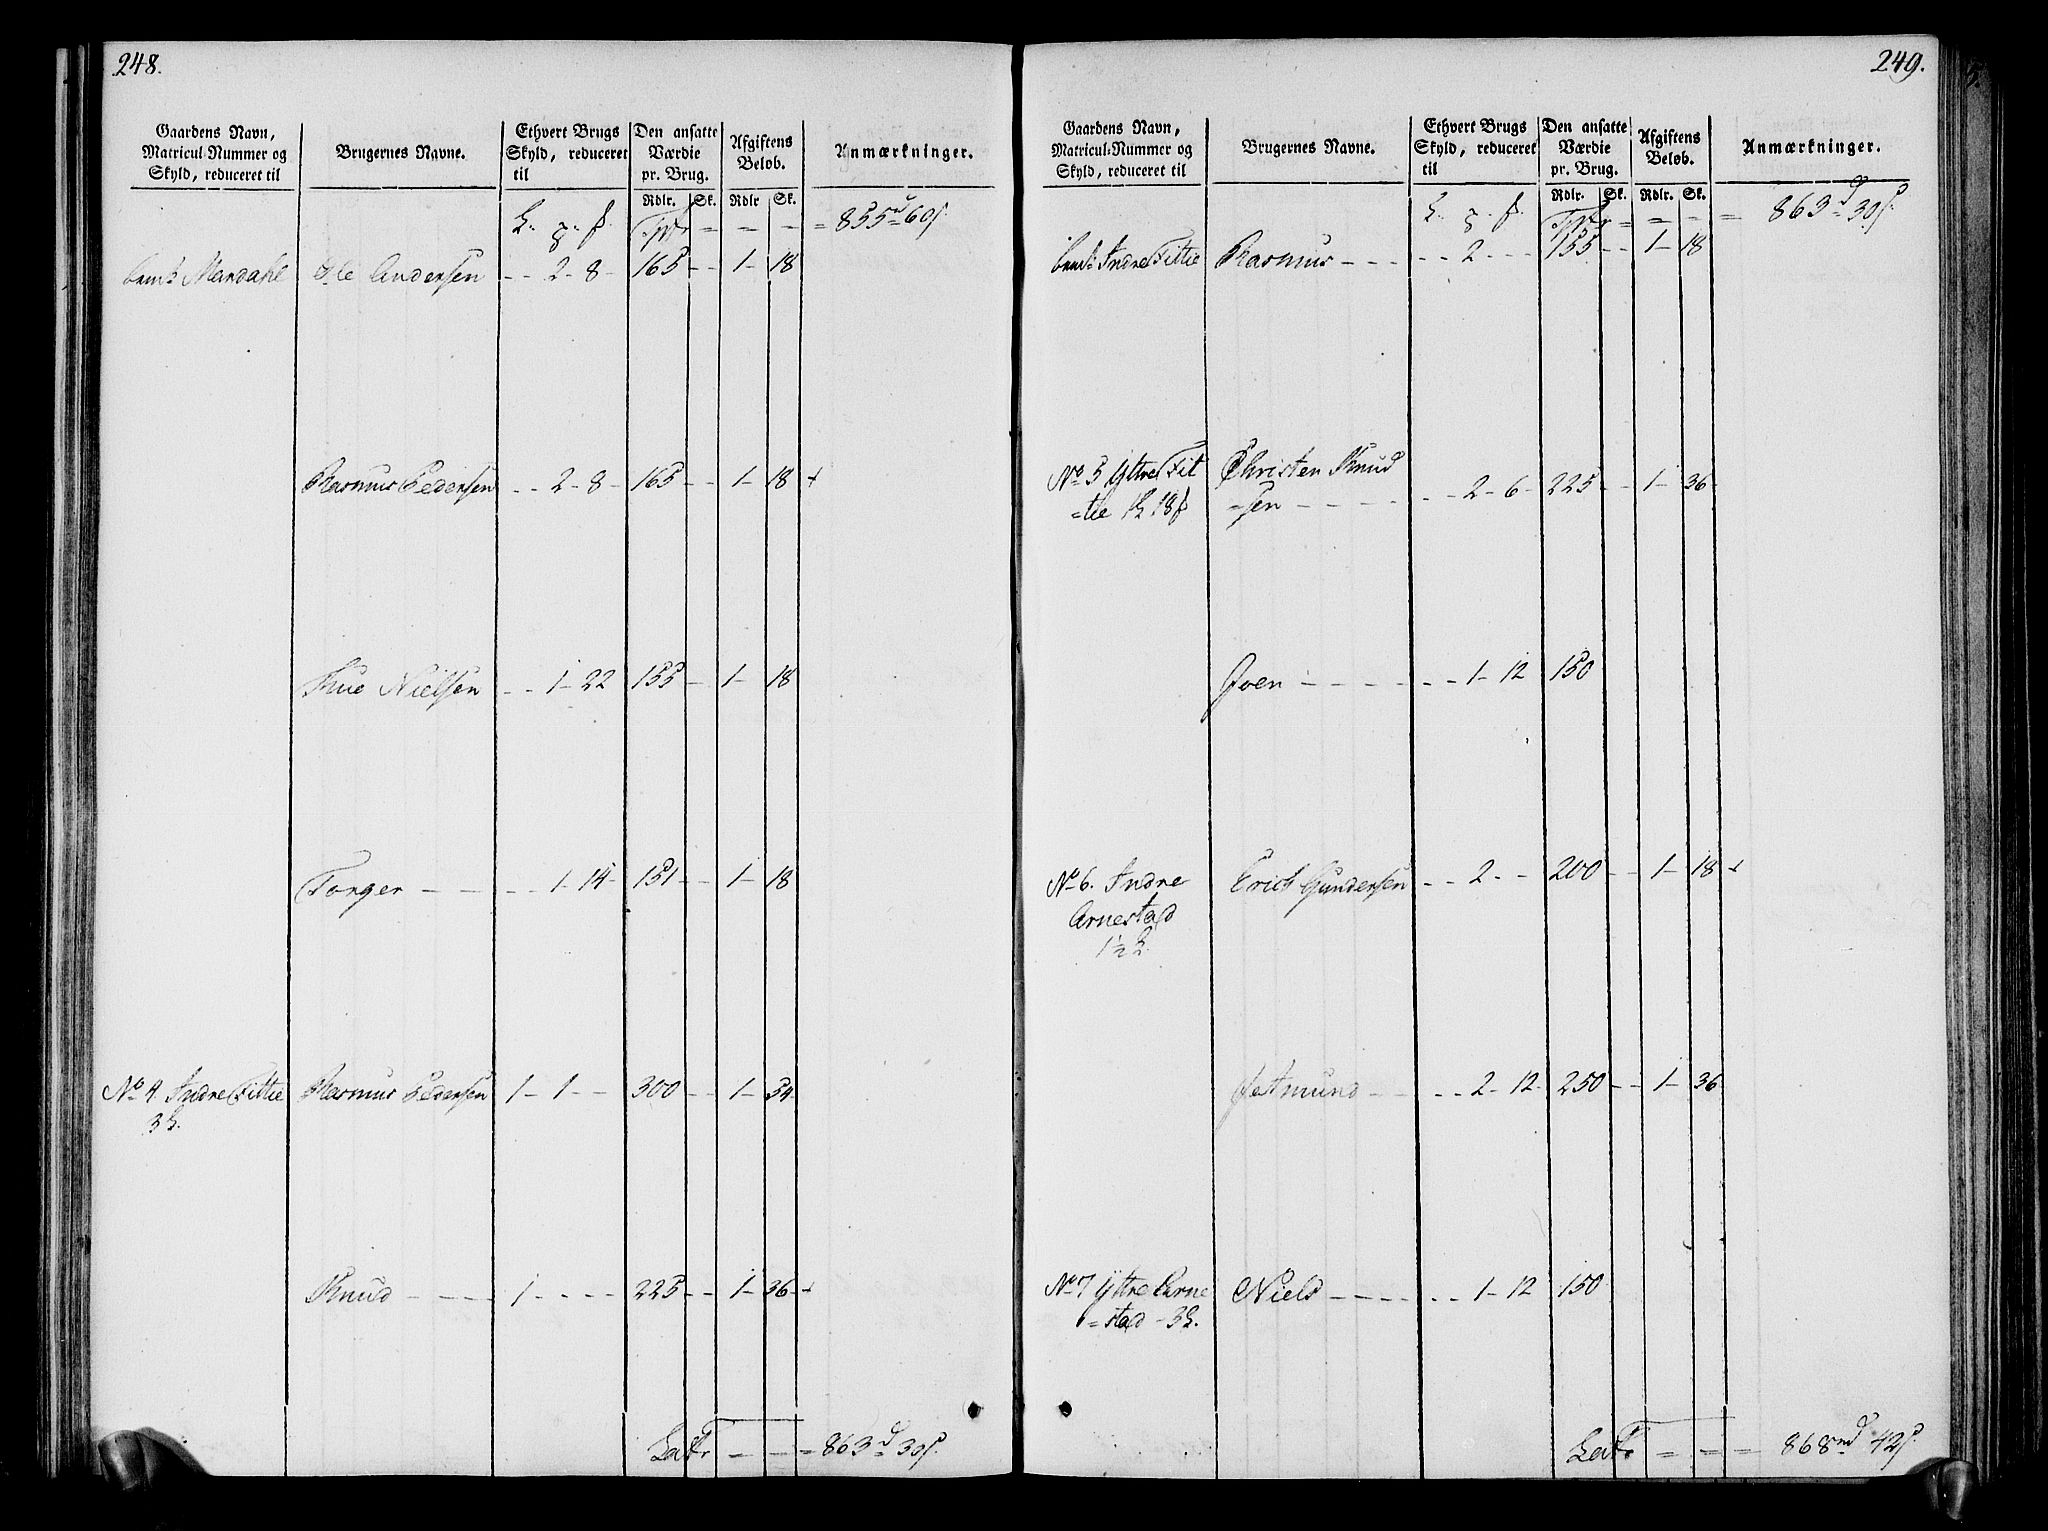 248.
Gaardens Navn, Matricul-Nummer og Skyld, reduceret til | Brugernes Navne. | Ethvert Brugs Skyld, reduceret til | Den ansatte Værdie pr. Brug. Rdlr. Sk. | Afgiftens Beløb. Rdlr Sk. | Anmærkninger.
= 855 d 60 s.
Mardahl Ole Andersen - - 2 - 8 - 165 - - 1 - 18
Rasmus Pedersen - - 2 - 8 - 165 - - 1 - 18 +
Knue Nielsen - - 1 - 22 155 - - 1 - 18
Torger - - - - 1 - 14 - 151 - - 1 - 18
No 4. Indre Fittie Rasmus Pedersen 1 - 1 - - 300 - - 1 - 54
3
Knud - - - - 1 - - - - 225 - - 1 - 36 - +
Latr - - = 863 d 30 s.
249.
Gaardens Navn, Matricul-Nummer og Skyld, reduceret til | Brugernes Navne. | Ethvert Brugs Skyld, reduceret til | Den ansatte Værdie pr. Brug. Rdlr. Sk. | Afgiftens Beløb. Rdlr. Sk. | Anmærkninger.
= 863 d 30 s.
Indre Fittie Rasmus - - - - - 2 - - - 155 - - 1 - 18
No 5 Yttre Fit Christen Knud
=tie 18 =sen - - - - - - 2 - 6 - 225 - - 1 - 36
Joen - - - - - - - 1 - 12 150
No 6. Indre Erich Gundersen - - 2 - - 200 - - 1 - 18 +
Arnestad
1½
Jetmund - - - - 2 - 12 - 250 - - 1 - 36
No 7 Yttre Arne Niels - - - - - - 1 - 12 150
=stad - 3
Latr = - - 868 42 s.